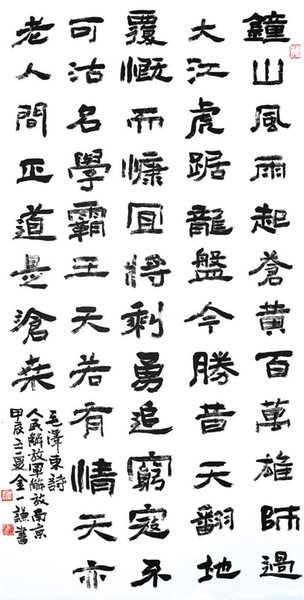 鐘山風雨起蒼黄百萬雄師過
大江虎踞龍盤今勝昔天翻地
覆慨而慷宜將剩勇追窮寇不
可沽名學霸王天若有情天亦
老人間正道是滄桑
毛澤東詩
人民解放軍解放南京
甲辰之夏金一謙書